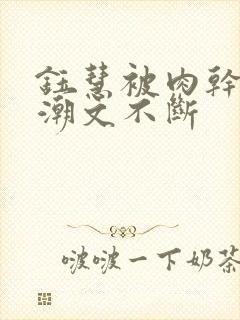 鈺慧被肉幹高
潮文不斷
啵啵一下奶茶